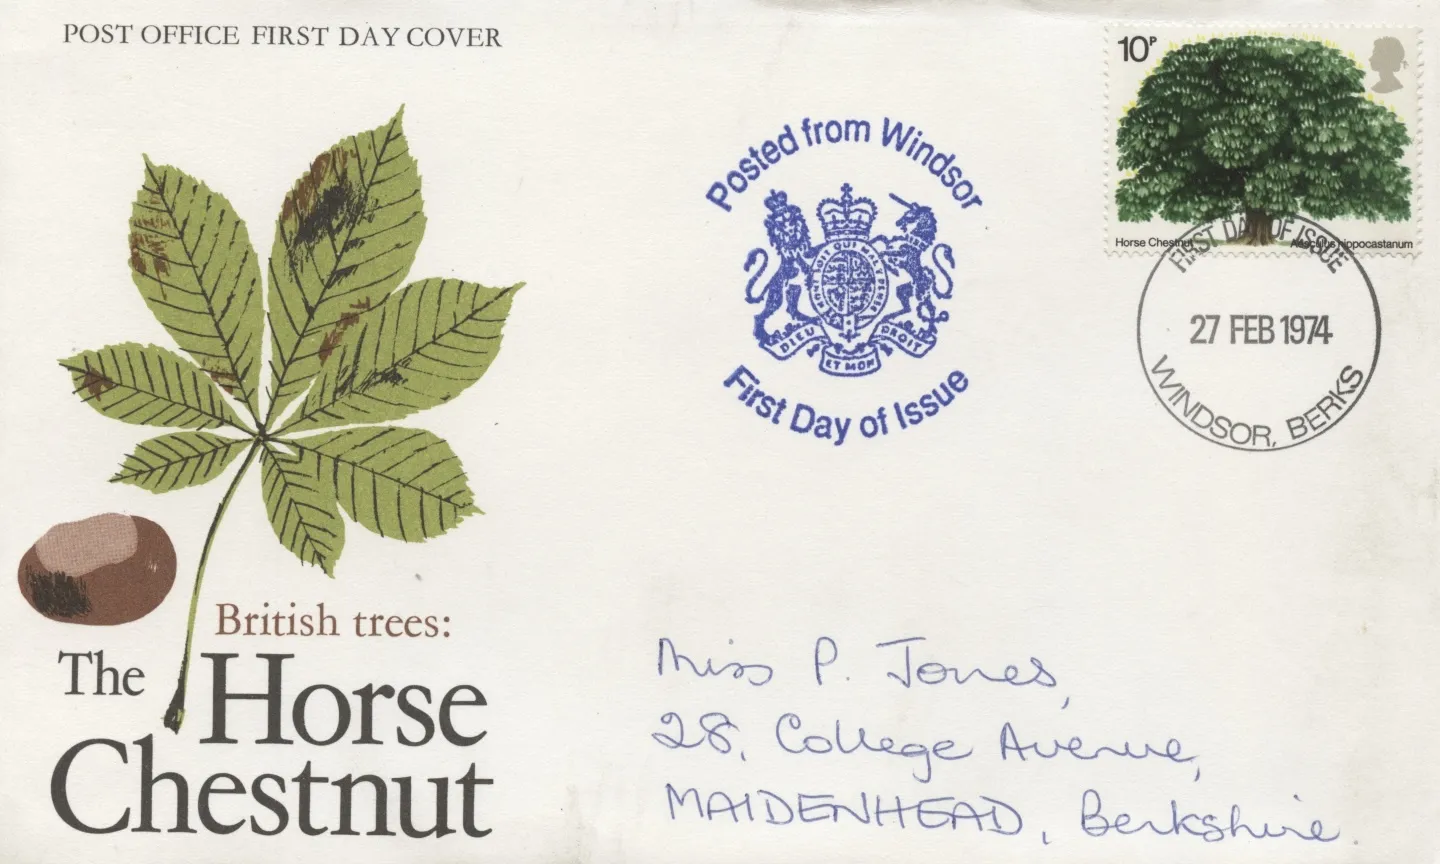 POST OFFICE FIRST DAY COVER
10P
Horse Chestnut
Aesculus hippocastanum
Posted from Windsor
HONI SOIT QUI MAL Y PENSE
DIEU ET MON DROIT
First Day of Issue
FIRST DAY OF ISSUE
27 FEB 1974
WINDSOR, BERKS
British trees:
The Horse
Chestnut
Miss P. Jones,
28, College Avenue,
MAIDENHEAD, Berkshire.